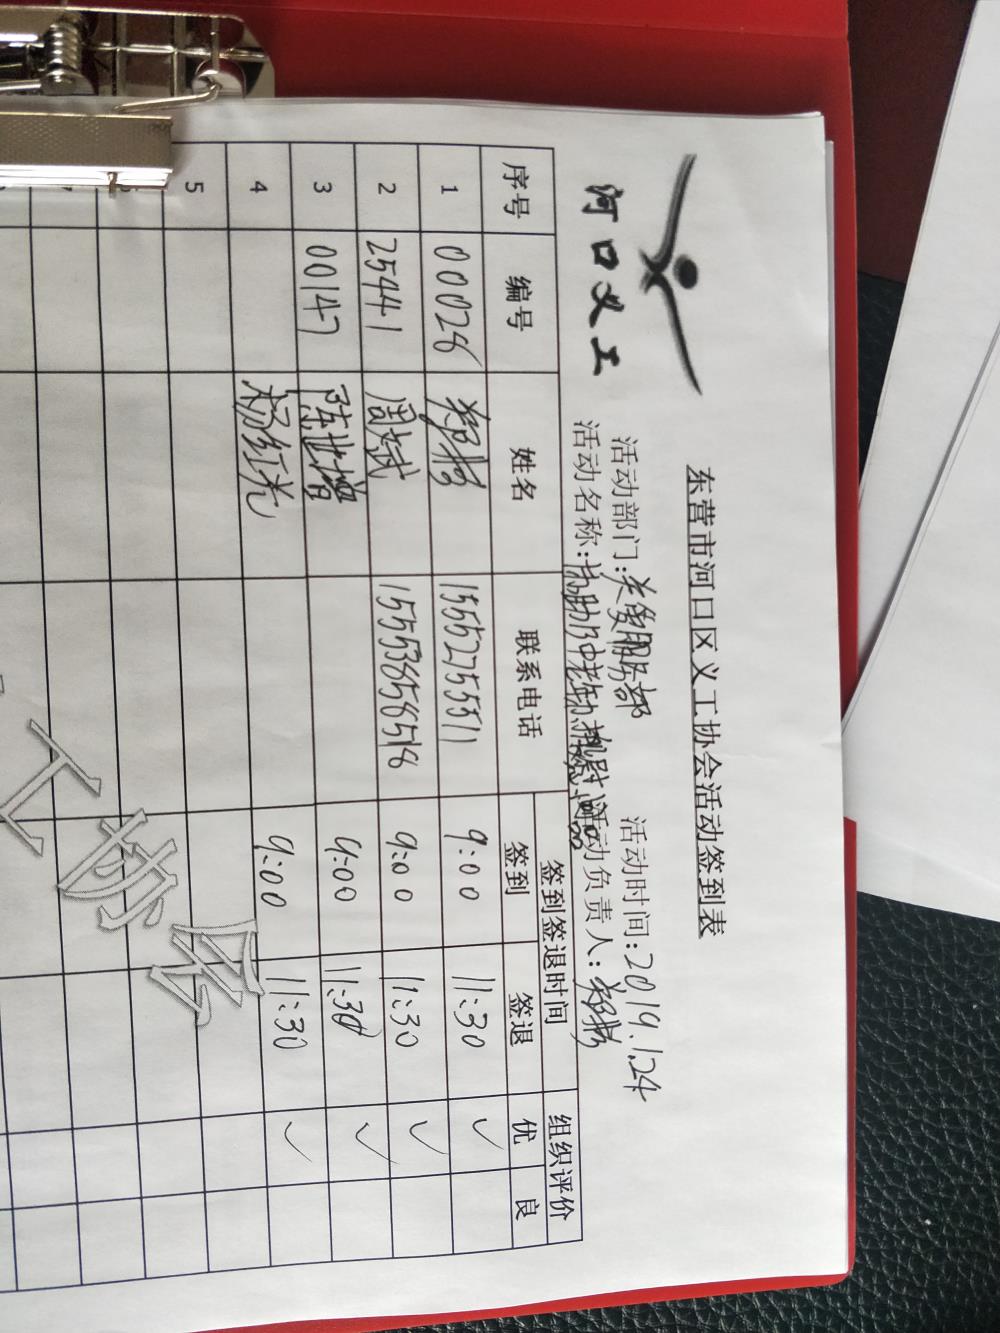 河口义工
东营市河口区义工协会活动签到表
活动部门:关爱服务部 活动时间:2019.1.24
活动名称: 活动负责人:郑杨
序号 编号 姓名 联系电话 签到签退时间 组织评价
签到 签退 优 良
1 00028 郑杨 15552755511 9:00 11:30 ✓
2 25441 周斌 15553658518 9:00 11:30 ✓
3 00147 陈世增 9:00 11:30 ✓
4 杨红光 9:00 11:30 ✓
5